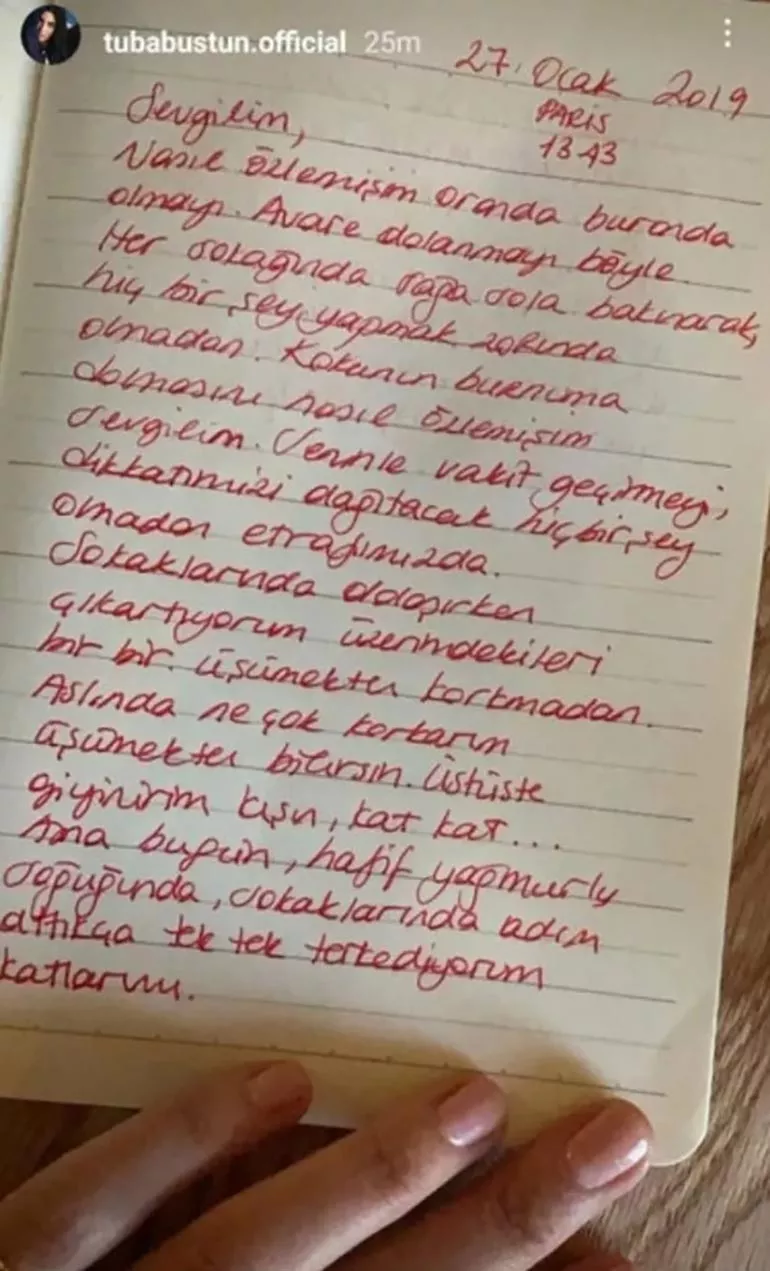 tubabustun.official 25m
27. Ocak 2019
PARIS
13.43
Sevgilim,
Nasıl özlemişim oranda buranda
olmayı. Avare dolanmayı böyle.
Her sokağında sağa sola bakınarak,
hiç bir şey yapmak zorunda
olmadan. Kokunun burnuma
dolmasını nasıl özlemişim
sevgilim. Senle vakit geçirmeyi,
dikkatimizi dağıtacak hiçbir şey
omadan etrafımızda.
Sokaklarında dolaşırken
çıkartıyorum üzerimdekileri
bir bir. üşümekten korkmadan.
Aslında ne çok korkarım
üşümekten bilirsin. Üstüste
giyinirim kışın, kat kat...
Ama bugün, hafif yağmurlu
soğuğunda, sokaklarında adım
attıkça tek tek terkediyorum
katlarımı.